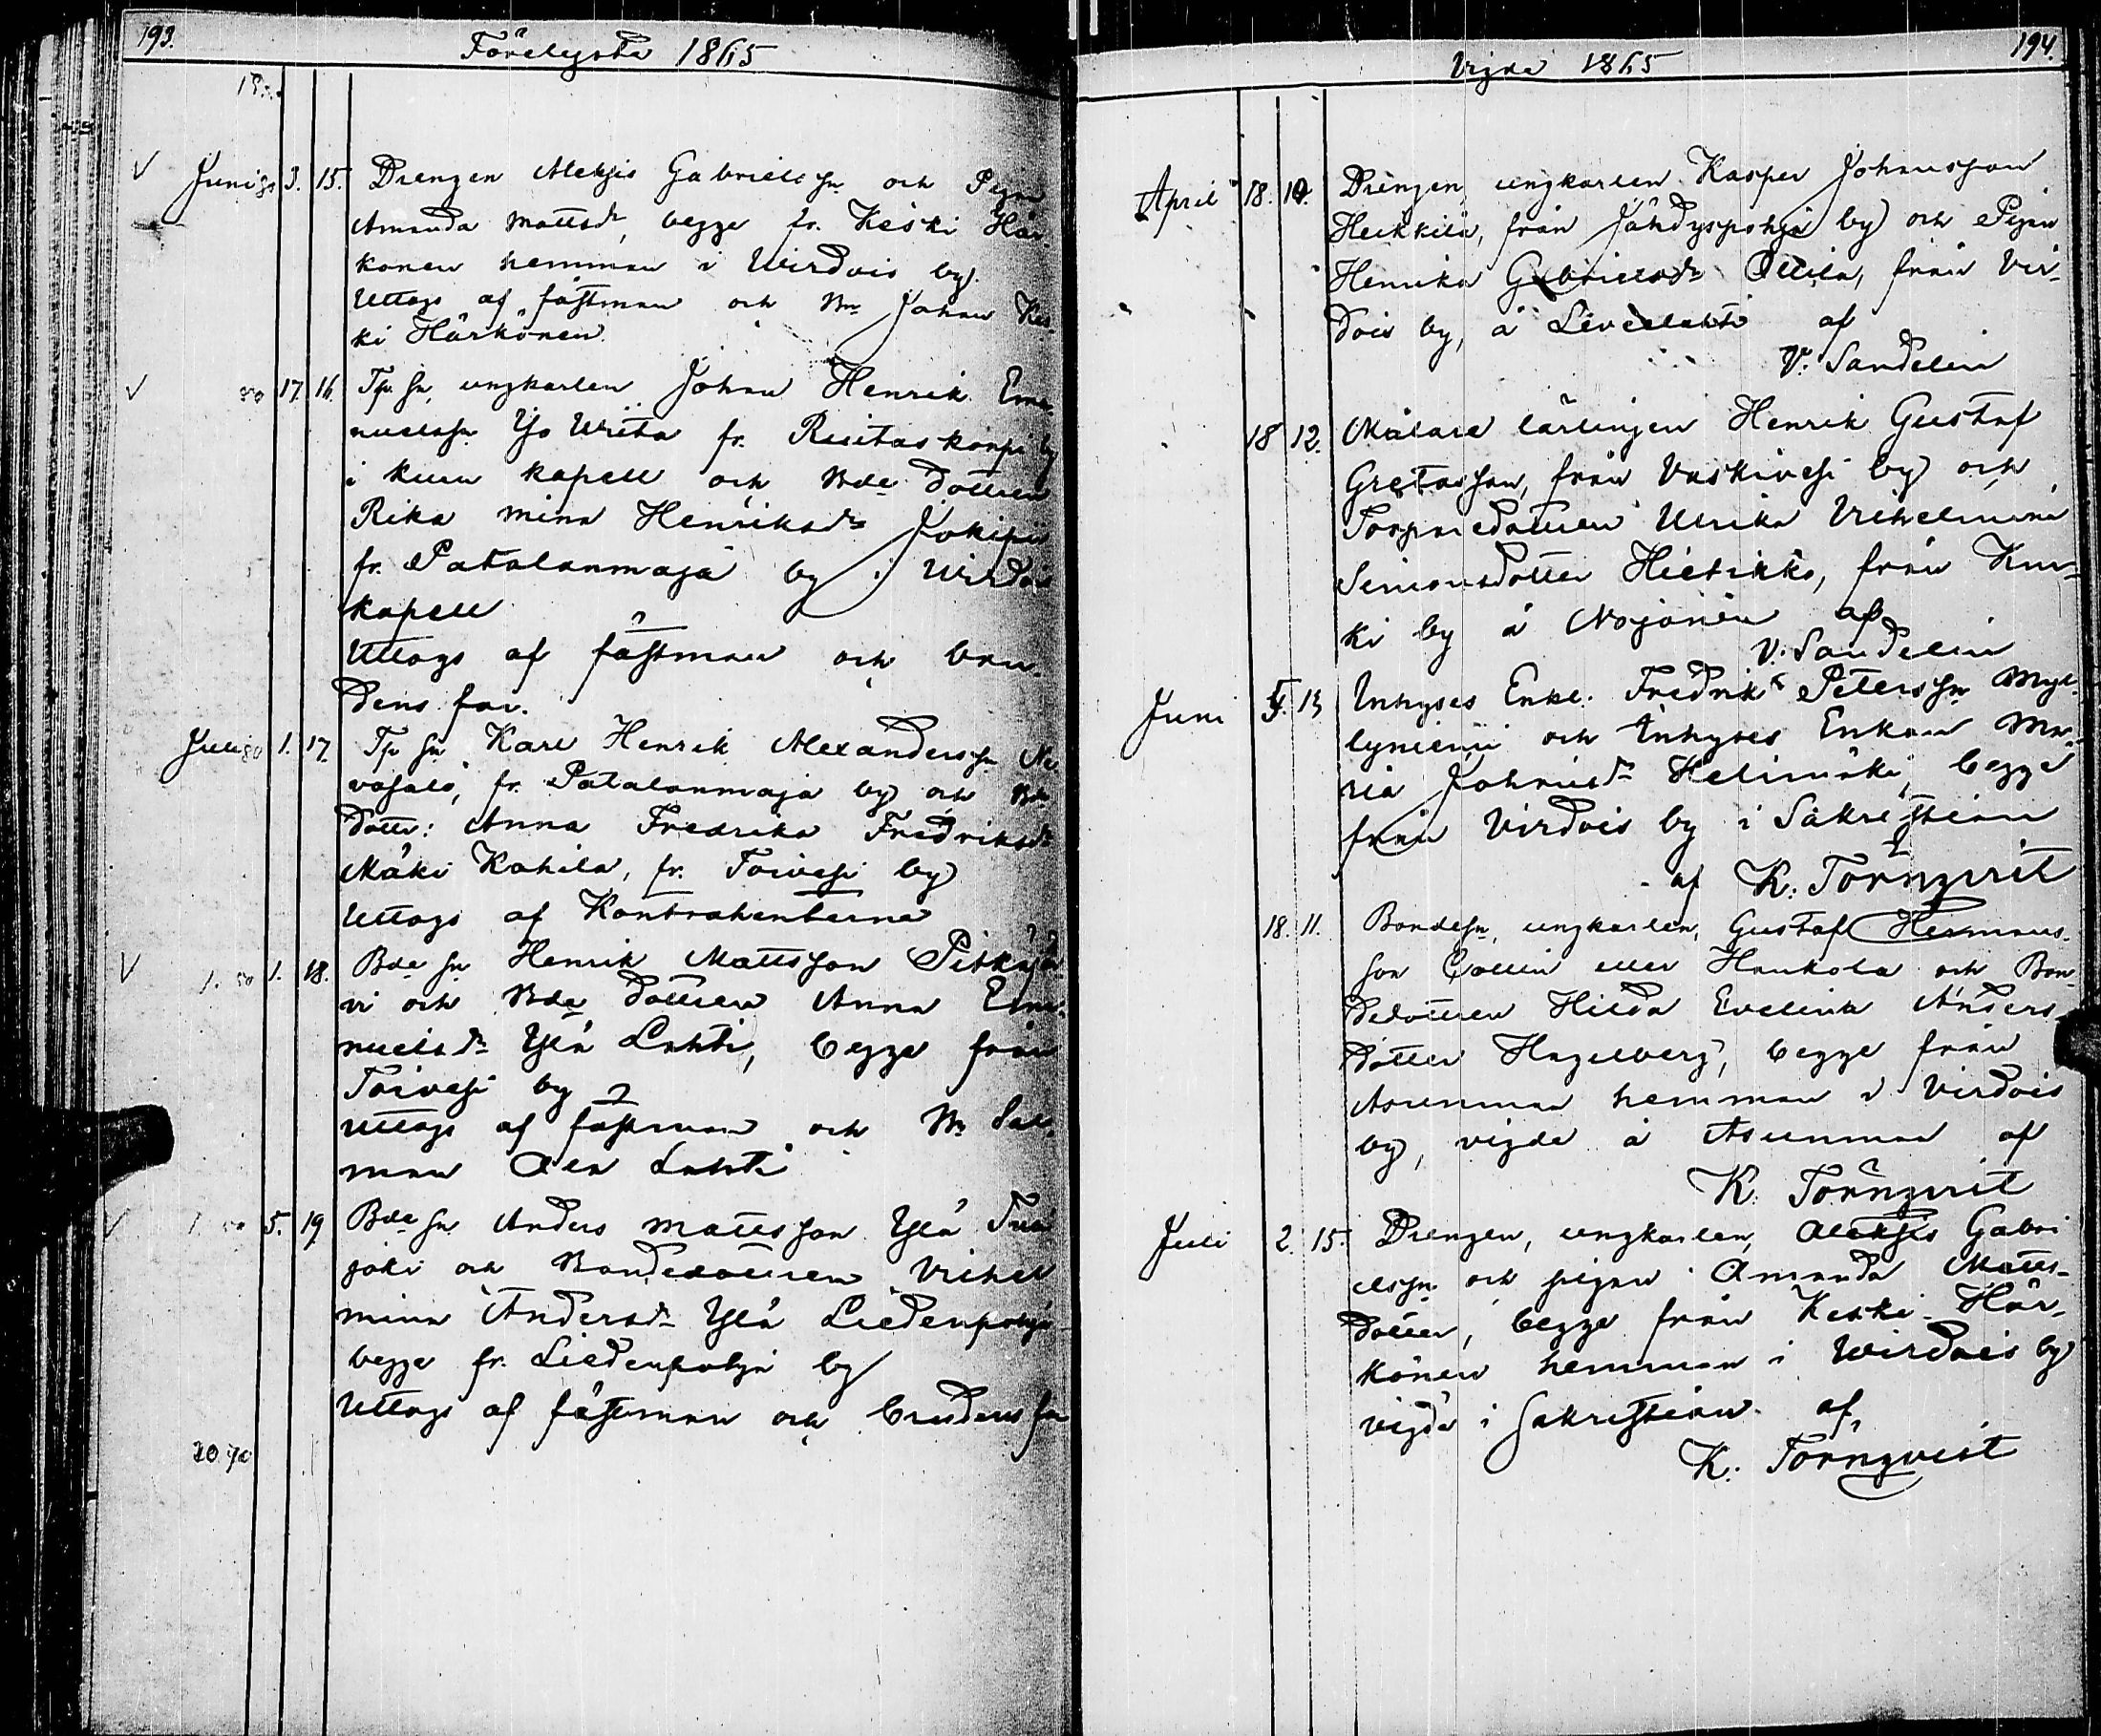 193.
Förelysta 1865
Juni 3. 15. Drengen Aleksis Gabrielssn och Pign
Amanda Mattsdr, begge fr. Keski Här-
könen hemman i Wirdois by.
Uttogs af fästman och Bn Johan Kes-
ki Härkönen.
50 17. 16. Tp. Sn, ungkarlen Johan Henrik Ema-
nuelssn Yo Wirta fr. Ruitaskorpi by
i Kuru kapell och Bde dottren
Rika Mina Henriksdr Jokipii
fr. Patalanmaja by i Wirdois
kapell
Uttogs af fästman och bru-
dens far.
Juli 1. 17. Tp Sn Karl Henrik Alexanderssn Ne-
vasalo, fr. Patalanmaja by och Bde
dotter: Anna Fredrika Fredriksdr
Mäki Kahila, fr. Toivesi by
Uttogs af Kontrahenterna
1. 50 1. 18. Bde Sn Henrik Mattsson Pitkäjä
vi och Bde dottren Anna Ema-
nuelsdr Ylä Lahti, begge från
Toivesi by
Uttogs af fästman och Bn Salo-
mon Ala Lahti
1. 50 5. 19. Bde Sn Anders Mattsson Ylä
joki och Bondedottren Vilhel
mina Andersdr Ylä Liedenpohja
begge fr. Liedenpohja by
Uttogs af fästman och brudens far
20 70
Vigda 1865
194.
April 18. 10. Drengen, ungkarlen Kasper Johansson
Heikkilä, från Jähdyspohja by och Pigan
Henrika Gabrielsdr Ollila, från Vir-
dois by, å Liedelahti af
V. Sandelin
18 12. Målare lärlingen Henrik Gustaf
Gretasson, från Vaskivesi by och
Torparedottren Ulrika Vilhelmina
Simonsdotter Hietikko, från Kur-
ki by å Nojonen af
V. Sandelin
Juni 5. 13 Inhyses Enkl. Fredrik Peterssn Myl-
lyniemi och Inhyses Enkan Ma-
ria Johansdr Helimäki, begge
från Virdois by i Sakristian
af K. Törnqvist
18. 11. Bondesn, ungkarlen, Gustaf Hermans-
son Collin eller Haukola och Bon-
dedottren Hilda Evelina Anders-
dotter Hagelberg, begge från
Asunmaa hemman i Virdois
by, vigde å Asunmaa af
K. Törnqvist
Juli 2. 15. Drengen, ungkarlen, Aleksis Gabri
elssn och pigan Amanda Matts-
dotter, begge från Keski Här-
könen hemman i Wirdois by
vigda i Sakristian af,
K. Törnqvist